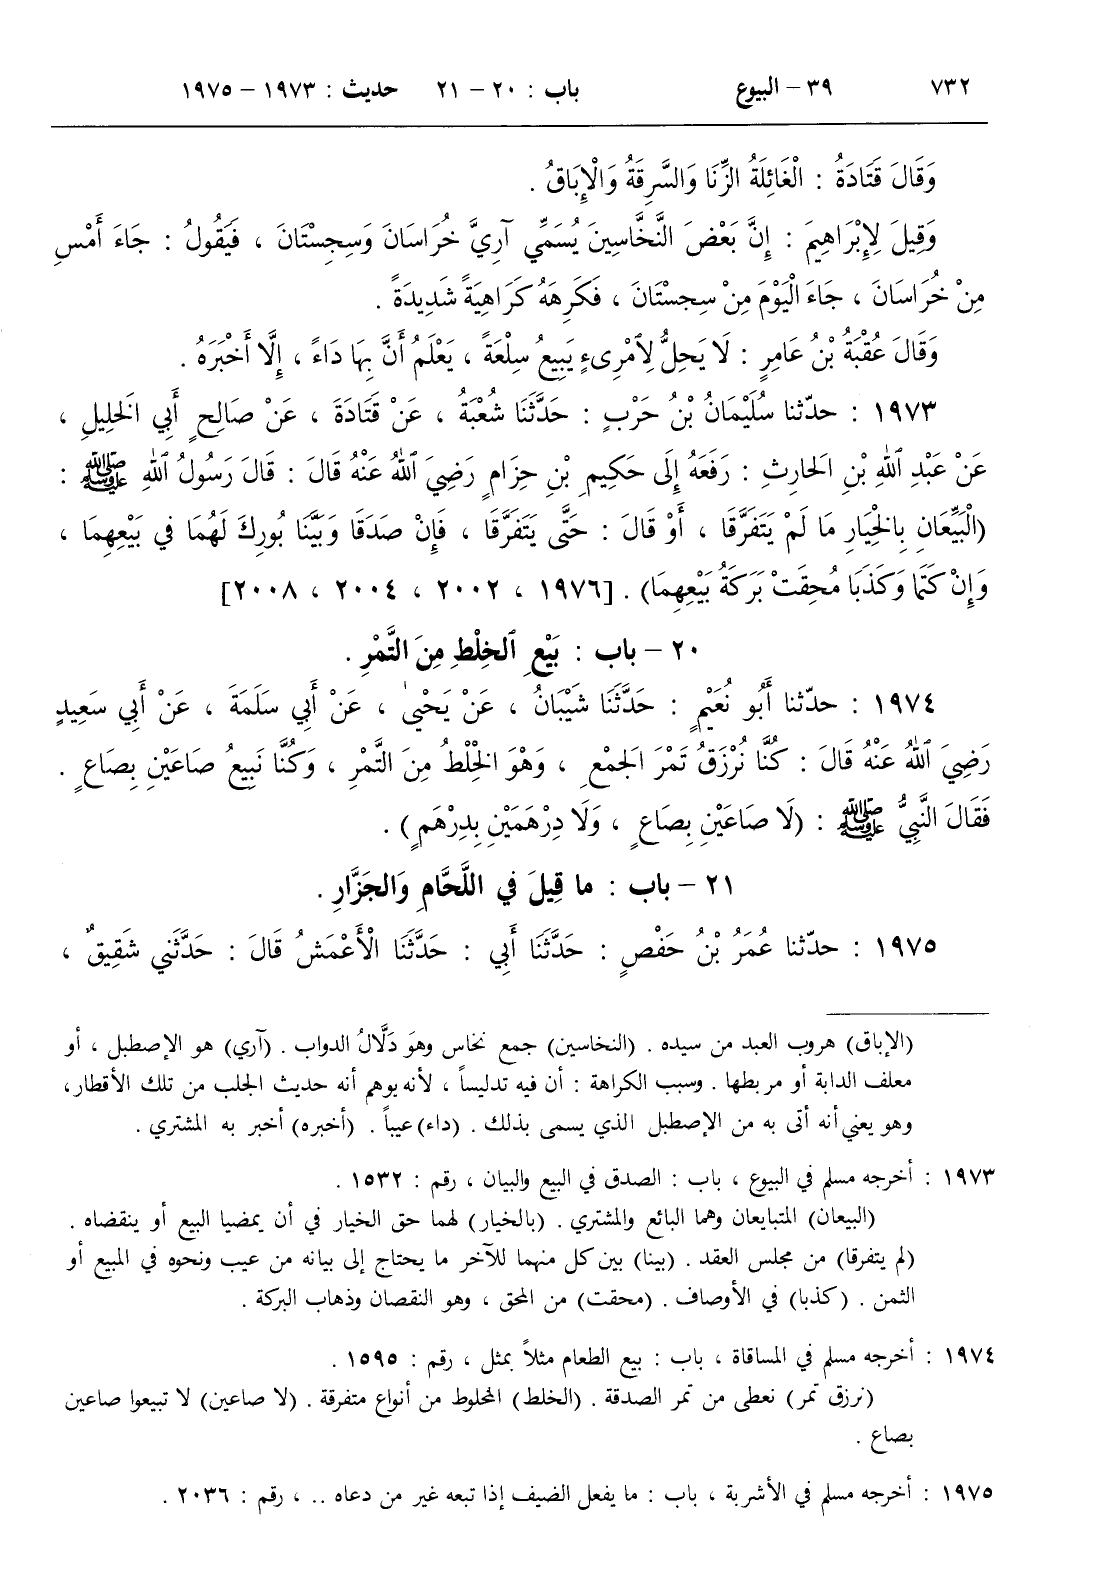 ٧٣٢ ٣٩ – البيوع باب : ٢٠ – ٢١ حديث : ١٩٧٣ – ١٩٧٥
وَقَالَ قَتَادَةُ : الْغَائِلَةُ الزِّنَا وَالسَّرِقَةُ وَالْإِبَاقُ .
وَقِيلَ لِإِبْرَاهِيمَ : إِنَّ بَعْضَ النَّخَّاسِينَ يُسَمِّي آرِيَّ خُرَاسَانَ وَسِجِسْتَانَ ، فَيَقُولُ : جَاءَ أَمْسِ
مِنْ خُرَاسَانَ ، جَاءَ الْيَوْمَ مِنْ سِجِسْتَانَ ، فَكَرِهَهُ كَرَاهِيَةً شَدِيدَةً .
وَقَالَ عُقْبَةُ بْنُ عَامِرٍ : لَا يَحِلُّ لِٱمْرِىءٍ يَبِيعُ سِلْعَةً ، يَعْلَمُ أَنَّ بِهَا دَاءً ، إِلَّا أَخْبَرَهُ .
١٩٧٣ : حدّثنا سُلَيْمَانُ بْنُ حَرْبٍ : حَدَّثَنَا شُعْبَةُ ، عَنْ قَتَادَةَ ، عَنْ صَالِحٍ أَبِي الخَلِيلِ ،
عَنْ عَبْدِ ٱللهِ بْنِ الحَارِثِ : رَفَعَهُ إِلَى حَكِيمِ بْنِ حِزَامٍ رَضِيَ ٱللهُ عَنْهُ قَالَ : قَالَ رَسُولُ ٱللهِ ﷺ :
(الْبَيِّعَانِ بِالْخِيَارِ مَا لَمْ يَتَفَرَّقَا ، أَوْ قَالَ : حَتَّى يَتَفَرَّقَا ، فَإِنْ صَدَقَا وَبَيَّنَا بُورِكَ لَهُمَا في بَيْعِهِمَا ،
وَإِنْ كَتَمَا وَكَذَبَا مُحِقَتْ بَرَكَةُ بَيْعِهِمَا) . [١٩٧٦ ، ٢٠٠٢ ، ٢٠٠٤ ، ٢٠٠٨]
٢٠ – باب : بَيْعِ ٱلخِلْطِ مِنَ التَّمْرِ .
١٩٧٤ : حدّثنا أَبُو نُعَيْمٍ : حَدَّثَنَا شَيْبَانُ ، عَنْ يَحْيىٰ ، عَنْ أَبِي سَلَمَةَ ، عَنْ أَبِي سَعِيدٍ
رَضِيَ ٱللهُ عَنْهُ قَالَ : كُنَّا نُرْزَقُ تَمْرَ الجَمْعِ ، وَهْوَ الْخِلْطُ مِنَ التَّمْرِ ، وَكُنَّا نَبِيعُ صَاعَيْنِ بِصَاعٍ .
فَقَالَ النَّبِيُّ ﷺ : (لَا صَاعَيْنِ بِصَاعٍ ، وَلَا دِرْهَمَيْنِ بِدِرْهَمٍ) .
٢١ – باب : ما قِيلَ في اللَّحَّامِ وَالجَزَّارِ .
١٩٧٥ : حدّثنا عُمَرُ بْنُ حَفْصٍ : حَدَّثَنَا أَبِي : حَدَّثَنَا الْأَعْمَشُ قَالَ : حَدَّثَنِي شَقِيقٌ ،
(الإباق) هروب العبد من سيده . (النخاسين) جمع نخاس وهوَ دَلَّالُ الدواب . (آري) هو الإصطبل ، أو
معلف الدابة أو مربطها . وسبب الكراهة : أن فيه تدليساً ، لأنه يوهم أنه حديث الجلب من تلك الأقطار،
وهو يعني أنه أتى به من الإصطبل الذي يسمى بذلك . (داء) عيباً . (أخبره) أخبر به المشتري .
١٩٧٣ : أخرجه مسلم في البيوع ، باب : الصدق في البيع والبيان ، رقم : ١٥٣٢ .
(البيعان) المتبايعان وهما البائع والمشتري . (بالخيار) لهما حق الخيار في أن يمضيا البيع أو ينقضاه .
(لم يتفرقا) من مجلس العقد . (بينا) بين كل منهما للآخر ما يحتاج إلى بيانه من عيب ونحوه في المبيع أو
الثمن . (كذبا) في الأوصاف . (محقت) من المحق ، وهو النقصان وذهاب البركة .
١٩٧٤ : أخرجه مسلم في المساقاة ، باب : بيع الطعام مثلاً بمثل ، رقم : ١٥٩٥ .
(نرزق تمر) نعطى من تمر الصدقة . (الخلط) المخلوط من أنواع متفرقة . (لا صاعين) لا تبيعوا صاعين
بصاع .
١٩٧٥ : أخرجه مسلم في الأشربة ، باب : ما يفعل الضيف إذا تبعه غير من دعاه .. ، رقم : ٢٠٣٦ .